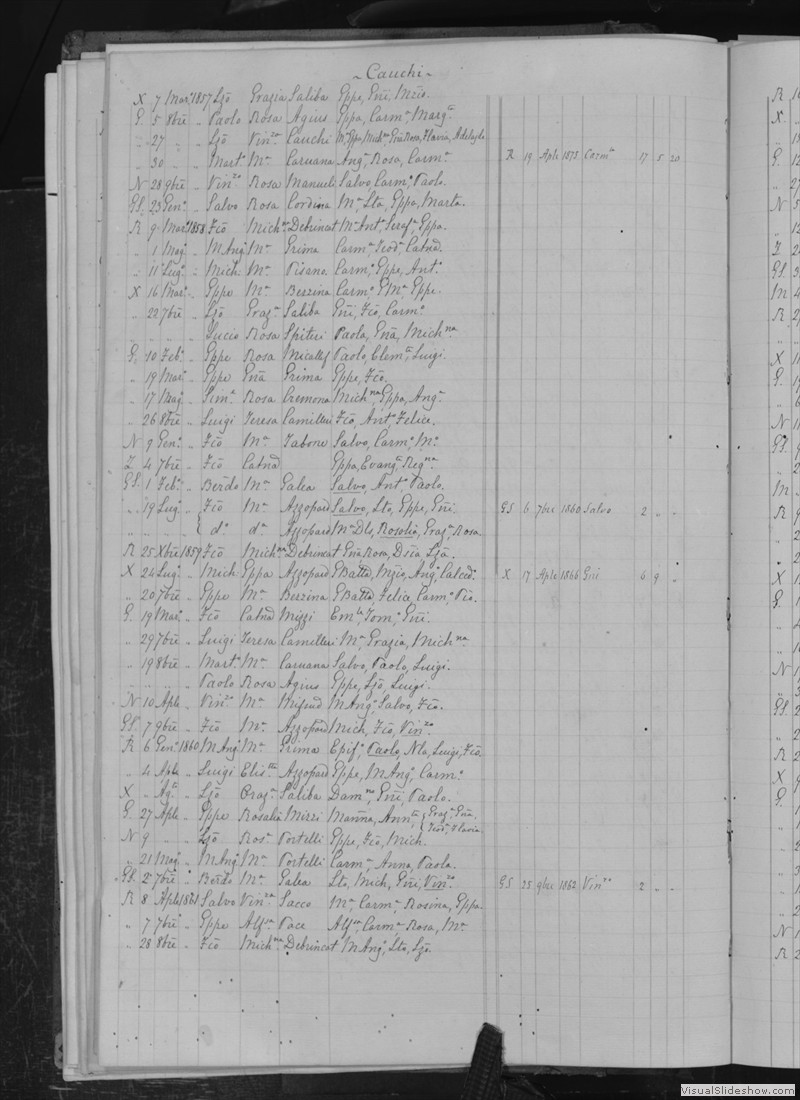 ~ Cauchi ~
X 7 Mar.º 1857 Lzō Grazia Saliba Gppe, Gñi, Mzio.
G. 5 8bre „ Paolo Rosa Agius Gppa, Carm.ª Marg.ta
„ 27 „ „ Lzō Vin.za Cauchi
„ 30 „ „ Mart.º M.ª Caruana Ang.ª Rosa, Carm.ª R 19 Aple 1875 Carm.ª 17 5 20
N 28 9bre „ Vin.zo Rosa Manueli Salvo, Carm.º Paolo.
GS. 23 Gen.º „ Salvo Rosa Cordina M.ª Lta, Gppa, Marta.
R 9 Mar.º 1858 Fcō Mich.na Debrincat M.ª Ant.ª Seraf.ª Gppa.
„ 1 Mag.º „ M Ang.º M.ª Grima Carm.ª Teod.ª Catnā.
„ 11 Lug.º „ Mich. M.ª Pisana Carm.º Gppe, Ant.º
X 16 Mar.º „ Gppe M.ª Berzina Carm.º G M.ª Gppe.
„ 22 7bre „ Lzō Graz.ª Saliba Gñi, Fcō, Carm.º
„ „ „ „ Lucio Rosa Spiteri Paola, Gñā, Mich.na
G. 10 Feb.º „ Gppe Rosa Micallef Paolo, Clem.te, Luigi.
„ 19 Mar.º „ Gppe Gñā Grima Gppe, Fcō.
„ 17 Mag.º „ Sim.e Rosa Cremona Mich.na, Gppa, Ang.ª
„ 26 8bre „ Luigi Teresa Camilleri Fcō, Ant.º Felice.
N 9 Gen.º „ Fcō M.ª Tabone Salvo, Carm.º M.ª
Z 4 7bre „ Fcō Catnā Gppa, Evang.ta Reg.na
GS. 1 Feb.º „ Berdo M.ª Galea Salvo, Ant.º Paolo.
„ 19 Lug.º „ Fcō M.ª Azzopard Salvo, Lto, Gppe, Gñi. GS 6 7bre 1860 Salvo 2 „ „
„ „ „ { d.º d.ª Azzopard M.ª Dls, Rosolia, Graz.ª Rosa.
R 25 Xbre 1859 Fcō Mich.na Debrincat Gñā Rosa, Dsia Lzā.
X 24 Lug.º „ Mich. Gppa Azzopard G Batta, Mzio, Ang.º Calced.º X 17 Aple 1866 Gñi 6 9 „
„ 20 7bre „ Gppe M.ª Berzina G Batta Felice, Carm.º Pio.
G. 19 Mar.º „ Fcō Catnā Mizzi Em.la, Tom.º Gñi.
„ 29 7bre „ Luigi Teresa Camilleri M.ª, Grazia, Mich.na
„ 19 8bre „ Mart.º M.ª Caruana Salvo, Paolo, Luigi.
„ „ „ „ Paolo Rosa Agius Gppe, Lzō, Luigi.
N 10 Aple „ Vin.zo M.ª Mifsud M Ang.º, Salvo, Fcō.
GS. 7 9bre „ Fcō M.ª Azzopard Mich, Fcō, Vin.zo
R 6 Gen.º 1860 M Ang.º M.ª Grima Epif.º, Paolo, Nla, Luigi, Fcō
„ 4 Aple „ Luigi Elis.tta Azzopard Gppe, M Ang.º, Carm.º
X „ Ag.to „ Lzō Graz.ª Saliba Dam.no, Gñi, Paolo.
G. 27 Aple „ Gppe Rosalia Mizzi Mañña, Ann.ta { Graz.ª Gñā. Teod.ª Flavia
N 9 „ „ Lzō Ros.ª Portelli Gppe, Fcō, Mich.
„ 21 Mag.º „ M Ang.º M.ª Portelli Carm.ª, Anna, Paola.
GS. 2 7bre „ Berdo M.ª Galea Lto, Mich, Gñi, Vin.zo GS 25 9bre 1862 Vin.zo 2 „ „
R 8 Aple 1861 Salvo Vin.za Sacco M.ª, Carm.ª, Rosina, Gppa.
„ 7 7bre „ Gppe Alf.sa Pace Alf.sa, Carm.ª Rosa, M.ª
„ 28 8bre „ Fcō Mich.na Debrincat M Ang.º, Lto, Lzō.
VisualSlideshow.com